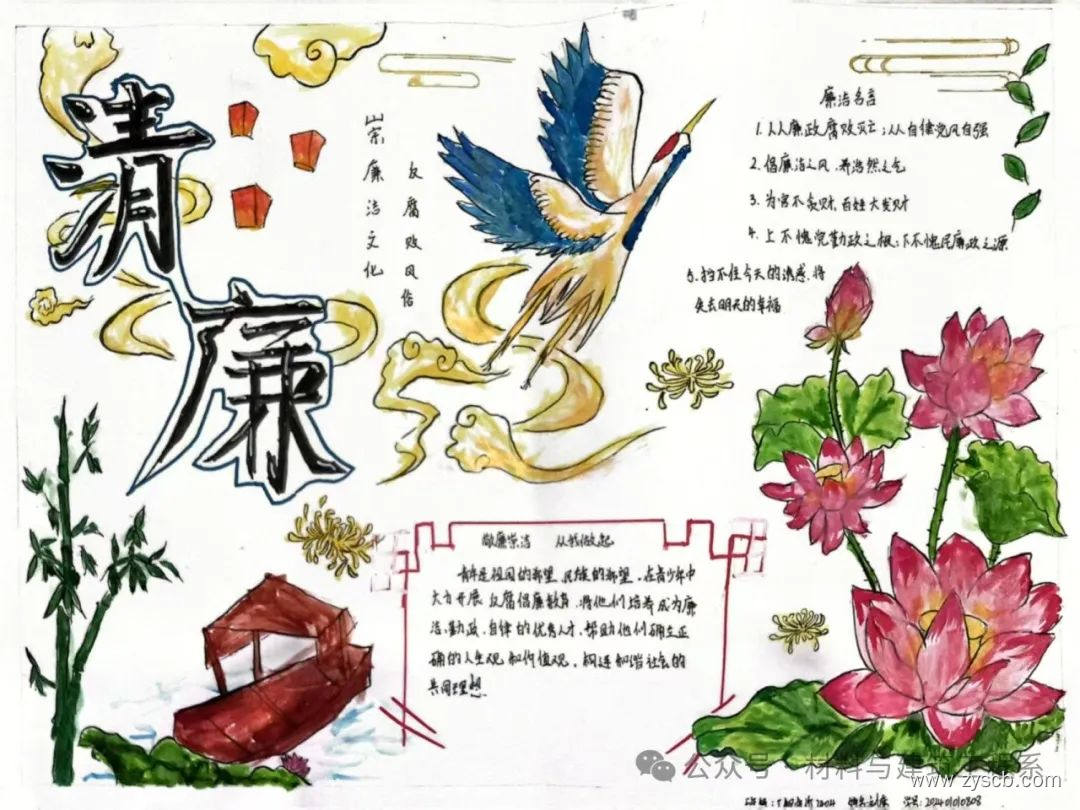 清廉
崇廉洁文化
反腐败风俗
廉洁名言
1. 人人廉政腐败灭亡;从自律党风自强
2. 倡廉洁之风,养浩然之气
3. 为官不贪财,百姓大发财
4. 上不愧党勤政之根;下不愧民廉政之源
5. 挡不住今天的诱惑,将
失去明天的幸福
敬廉崇洁 从我做起
青年是祖国的希望,民族的希望,在青少年中
大力开展反腐倡廉教育,将他们培养成为廉
洁、勤政、自律的优秀人才,帮助他们确立正
确的人生观和价值观,构建和谐社会的
共同理想
公众号·材料与建筑工程系
www.zyscb.com
学号:202401010808